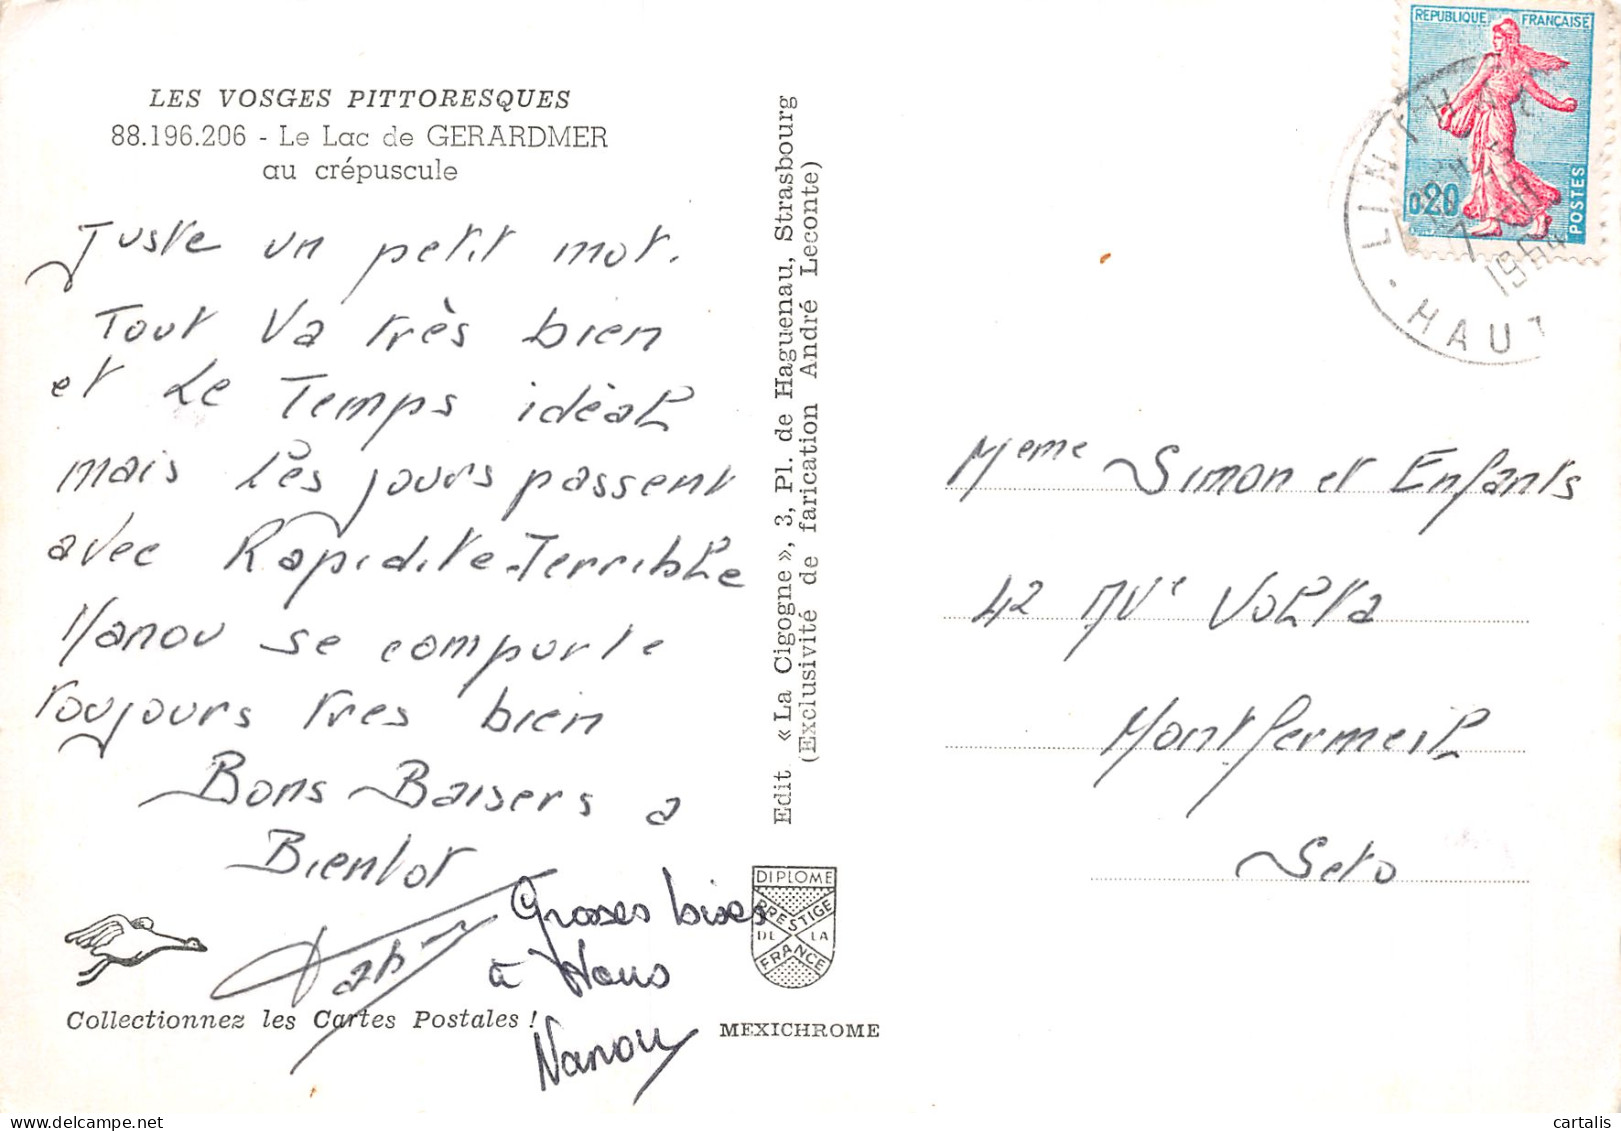 LES VOSGES PITTORESQUES
88.196.206 - Le Lac de GERARDMER
au crépuscule
Juste un petit mot.
Tout va très bien
et le Temps idéal
mais les jours passent
avec Rapidite Terrible
Nanou se comporte
toujours tres bien
Bons Baisers a
Bientot
Grosses bises
à tous
Nanou
Collectionnez les Cartes Postales !
Edit « La Cigogne », 3, Pl. de Haguenau, Strasbourg
(Exclusivité de farication André Leconte)
DIPLOME
PRESTIGE
DE LA
FRANCE
MEXICHROME
REPUBLIQUE FRANÇAISE
0,20
POSTES
LINTHAL
1964
HAUT
Meme Simon et Enfants
42 AVe Volta
Montfermeil
Seto
cartalis